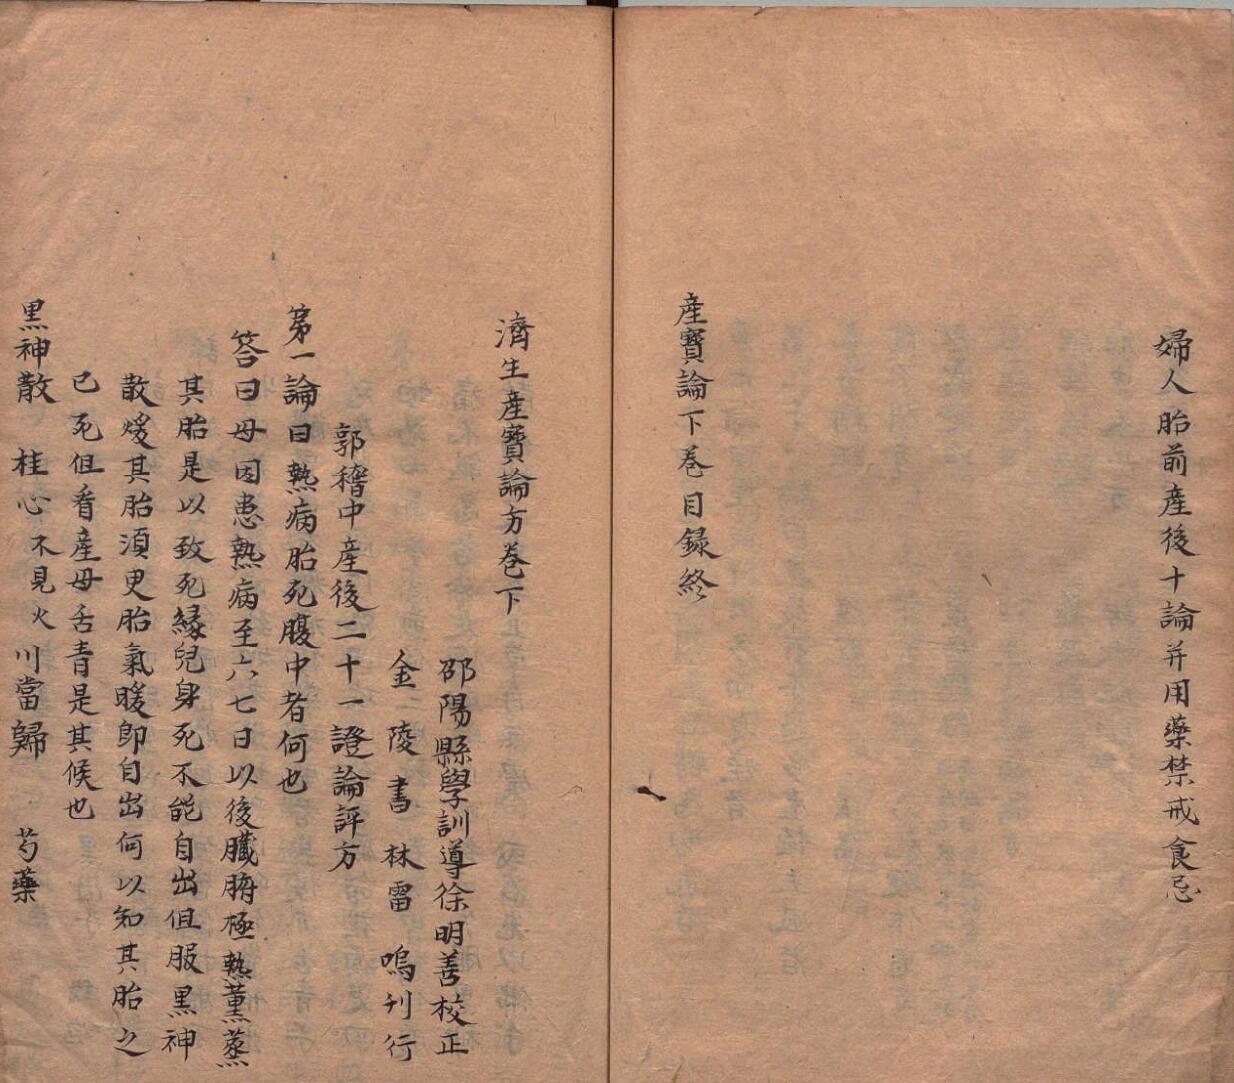 婦人胎前産後十論并用藥禁戒食忌
産寶論下卷目録終
濟生産寶論方卷下
邵陽縣學訓導徐明善校正
金陵書林雷鳴刊行
郭稽中産後二十一證論評方
第一論曰熱病胎死腹中者何也
答曰母因患熱病至六七日以後臟腑極熱薰蒸
其胎是以致死縁兒身死不能自出但服黒神
散煖其胎湏更胎氣暖即自出何以知其胎之
已死但看産母舌青是其候也
黒神散 桂心不見火 川當歸 芍藥